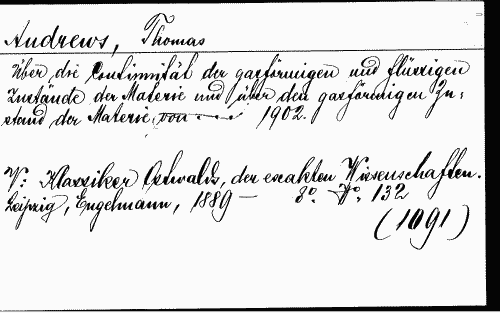 Andrews, Thomas
Über die Continuität der gasförmigen und flüssigen
Zustände der Materie und über den gasförmigen Zu-
stand der Materie, von — 1902.
V: Klassiker Ostwalds, der exakten Wissenschaften.
Leipzig, Engelmann, 1889 — 8º. Nº. 132
(1091)